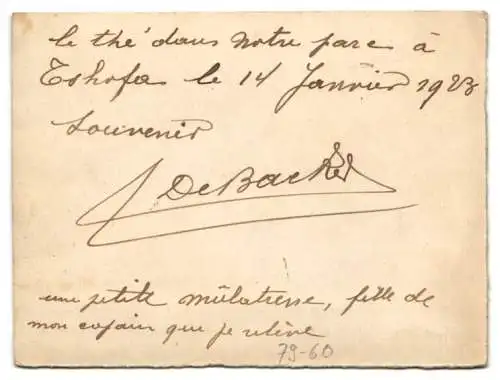 le thé dans notre parc à
Tshofa le 14 Janvier 1923
souvenir
De Backer
une petite mûlatresse, fille de
mon copain que je relève
79-60